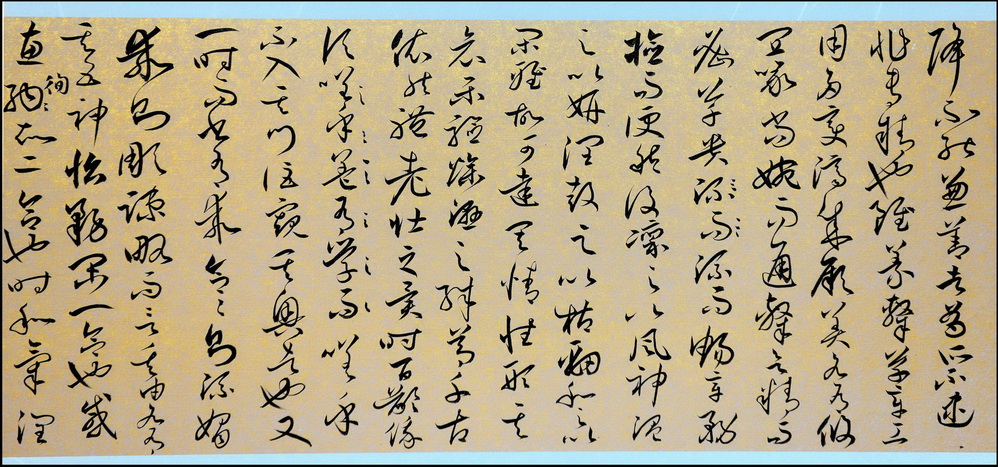 降不能兼善者有所不逮
非專精也雖篆隸草章工
用多變濟成厥美各有攸
宜篆尚婉而通隸欲精而
密草貴流而流而暢章務
檢而便然後凜之以風神溫
之以妍潤鼓之以枯勁和之以
閑雅故可達其情性形其
哀樂驗燥濕之殊節千古
依然體老壯之異時百齡俄
頃嗟乎蓋有學而嗟乎
不入其門詎窺其奧者也又
一時而書有乖有合合則流媚
乖則彫疎略而言其由各有
其五神怡務閑一合也感
惠徇知二合也時和氣潤